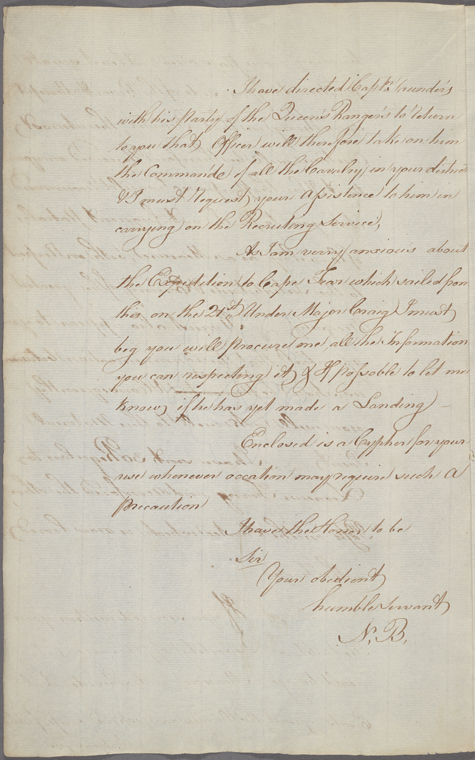 I have directed Capt. Saunders
with his Party of the Queens Rangers to return
to you that Officer will therefore take on him
the Command of all the Cavalry in your district
& I must request your assistance to him in
carrying on the Recruiting Service,
As I am verry anxious about
the Expedition to Cape Fear which sailed from
this on the 21st. Under Major Craig I must
beg you will procure me all the information
you can respecting it, & If possable to let me
know, if he has yet made a Landing —
Enclosed is a Cypher for your
use whenever occation may require such a
Precaution
I have the Honor to be
Sir
Your obedient
humble Servant
N. B.